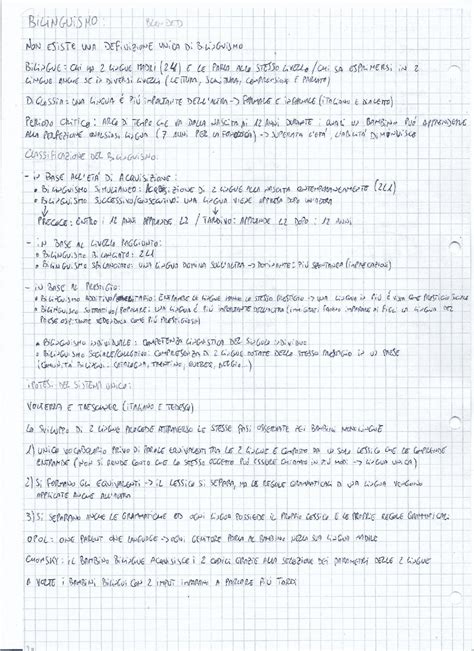 BILINGUISMO:
NON ESISTE UNA DEFINIZIONE UNICA DI BILINGUISMO
BILINGUE: CHI HA 2 LINGUE MADRI (2L1) E LE PARLA ALLO STESSO LIVELLO / CHI SA ESPRIMERSI IN 2
LINGUE ANCHE SE IN DIVERSI LIVELLI (LETTURA, SCRITTURA, COMPRENSIONE E PARLATO)
DIGLOSSIA: UNA LINGUA È PIÙ IMPORTANTE DELL'ALTRA → FORMALE E INFORMALE (ITALIANO E DIALETTO)
PERIODO CRITICO: ARCO DI TEMPO CHE VA DALLA NASCITA AI 12 ANNI DURANTE I QUALI UN BAMBINO PUÒ APPRENDERE
ALLA PERFEZIONE QUALSIASI LINGUA (7 ANNI PER LA FONOLOGIA) → SUPERATA L'ETÀ,
CLASSIFICAZIONE DEL BILINGUISMO:
- IN BASE ALL'ETÀ DI ACQUISIZIONE:
• BILINGUISMO SIMULTANEO: ACQUISIZIONE DI 2 LINGUE ALLA NASCITA CONTEMPORANEAMENTE (2L1)
• BILINGUISMO SUCCESSIVO/CONSECUTIVO: UNA LINGUA VIENE APPRESA DOPO UN'ALTRA
PRECOCE: ENTRO I 12 ANNI APPRENDE L2 / TARDIVO: APPRENDE L2 DOPO I 12 ANNI
- IN BASE AL LIVELLO RAGGIUNTO:
• BILINGUISMO BILANCIATO: 2L1
• BILINGUISMO SBILANCIATO: UNA LINGUA DOMINA SULL'ALTRA → DOMINANTE: PIÙ SPONTANEA (IMPRECAZIONI)
- IN BASE AL PRESTIGIO:
• BILINGUISMO ADDITIVO/ : ENTRAMBE LE LINGUE HANNO LO STESSO PRESTIGIO → UNA LINGUA IN PIÙ È VISTA COME PRESTIGIO SOCIALE
• BILINGUISMO SOTTRATTIVO/POPOLARE: UNA LINGUA È PIÙ IMPORTANTE DELL'ALTRA (IMMIGRATI FANNO IMPARARE AI FIGLI LA LINGUA DEL
PAESE OSPITANTE VEDENDOLA COME PIÙ PRESTIGIOSA)
• BILINGUISMO INDIVIDUALE: COMPETENZA LINGUISTICA DEL SINGOLO INDIVIDUO
• BILINGUISMO SOCIALE/COLLETTIVO: COMPRESENZA DI 2 LINGUE DOTATE DELLO STESSO PRESTIGIO IN UN PAESE
(COMUNITÀ BILINGUI: CATALOGNA, TRENTINO, QUEBEC, BELGIO...)
IPOTESI DEL SISTEMA UNICO:
VOLTERRA E TAESCHNER (ITALIANO E TEDESCO)
LO SVILUPPO DI 2 LINGUE PROCEDE ATTRAVERSO LE STESSE FASI OSSERVATE NEI BAMBINI MONOLINGUE
1) UNICO VOCABOLARIO PRIVO DI PAROLE EQUIVALENTI TRA LE 2 LINGUE E COMPOSTO DA UN SOLO LESSICO CHE LE COMPRENDE
ENTRAMBE (NON SI RENDE CONTO CHE LO STESSO OGGETTO PUÒ ESSERE CHIAMATO IN PIÙ MODI → LINGUA UNICA)
2) SI FORMANO GLI EQUIVALENTI → IL LESSICO SI SEPARA, MA LE REGOLE GRAMMATICALI DI UNA LINGUA VENGONO
APPLICATE ANCHE ALL'ALTRA
3) SI SEPARANO ANCHE LE GRAMMATICHE ED OGNI LINGUA POSSIEDE IL PROPRIO LESSICO E LE PROPRIE REGOLE GRAMMATICALI
OPOL: ONE PARENT ONE LANGUAGE → OGNI GENITORE PARLA AL BAMBINO NELLA SUA LINGUA MADRE
CHOMSKY: IL BAMBINO BILINGUE ACQUISISCE I 2 CODICI GRAZIE ALLA SELEZIONE DEI PARAMETRI DELLE 2 LINGUE
A VOLTE I BAMBINI BILINGUI CON 2 INPUT IMPARANO A PARLARE PIÙ TARDI